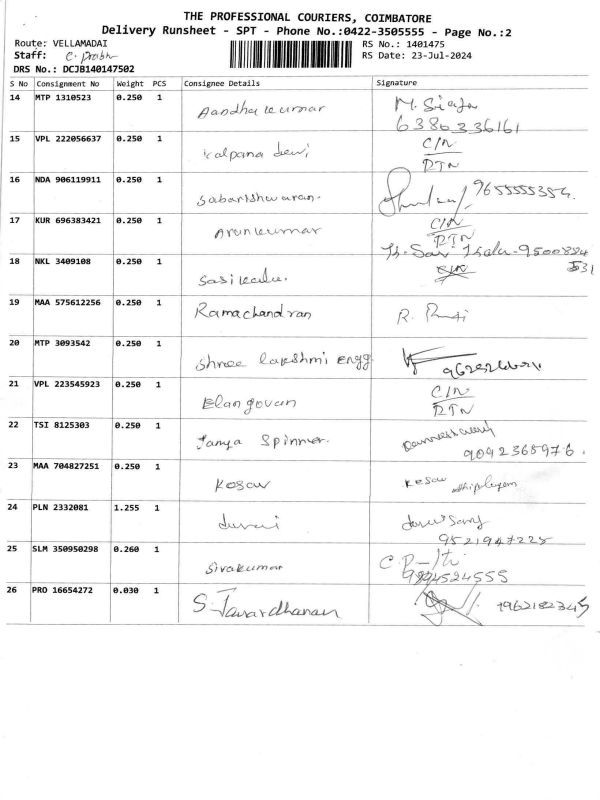 THE PROFESSIONAL COURIERS, COIMBATORE
Delivery Runsheet - SPT - Phone No.:0422-3505555 - Page No.:2
Route: VELLAMADAI RS No.: 1401475
Staff: C. Prabh RS Date: 23-Jul-2024
DRS No.: DCJB140147502
S No Consignment No Weight PCS Consignee Details Signature
14 MTP 1310523 0.250 1 Aandhakumar
6380336161
15 VPL 222056637 0.250 1 Kalpana devi C/N
RTN
16 NDA 906119911 0.250 1 Sabarishwaran. 9655555354.
17 KUR 696383421 0.250 1 Arunkumar C/N
RTN
18 NKL 3409108 0.250 1 Sasikala. 9500884
531
19 MAA 575612256 0.250 1 Ramachandran R.
20 MTP 3093542 0.250 1 Shree lakshmi engg.
21 VPL 223545923 0.250 1 Elangovan C/N
RTN
22 TSI 8125303 0.250 1 Tanya Spinner.
9092368976.
23 MAA 704827251 0.250 1 Kesav Kesav
24 PLN 2332081 1.255 1 durai duraisamy
9521947228
25 SLM 350950298 0.260 1 Sivakumar
9894524555
26 PRO 16654272 0.030 1 S. Janardhanan 7962182345